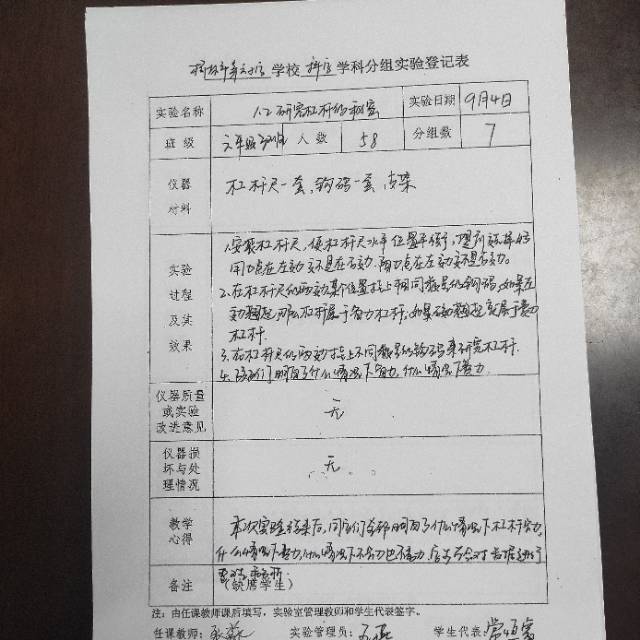 学校 科学 学科分组实验登记表
实验名称 1.2研究杠杆的秘密 实验日期 9月4日
班 级 六年级 人 数 58 分组数 7
仪器材料 杠杆尺一套,钩码一套,支架
实验过程及实效果
1.安装杠杆尺,使杠杆尺水平位置平衡,
用力点在左边还是在右边.阻力点在左边还是右边。
2.在杠杆尺的两边某个位置挂上相同数量的钩码,如果左
边翘起,那么杠杆属于省力杠杆,如果右边翘起就属于费力
杠杆.
3.在杠杆尺的两边挂上不同数量的钩码来研究杠杆.
4.同学们明白了什么情况下省力,什么情况下费力.
仪器质量或实验改进意见 无
仪器损坏与处理情况 无
教学心得
本次实验结束后,同学们全部明白了什么情况下杠杆省力,
什么情况下费力,什么情况下不省力也不费力,
备注 (缺席学生)
注:由任课教师课后填写,实验室管理教师和学生代表签字。
任课教师: 实验管理员: 学生代表: